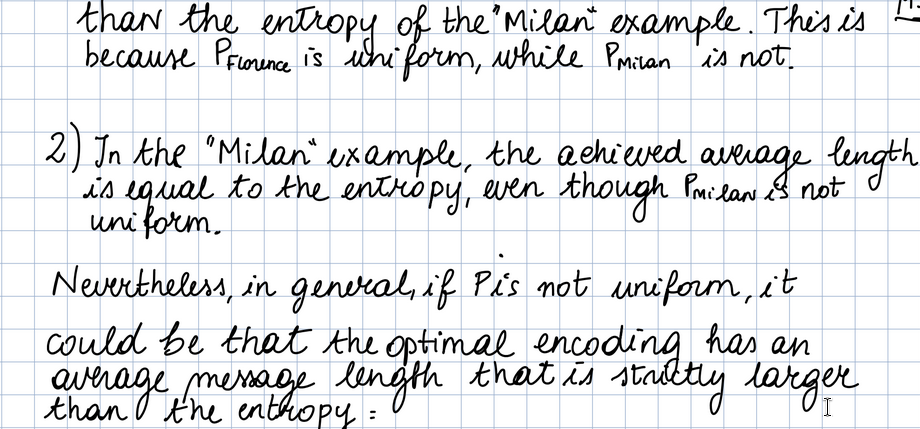 than the entropy of the "Milan" example. This is
because P_Florence is uniform, while P_Milan is not.
2) In the "Milan" example, the achieved average length
is equal to the entropy, even though P_Milan is not
uniform.
Nevertheless, in general, if P is not uniform, it
could be that the optimal encoding has an
average message length that is strictly larger
than the entropy :